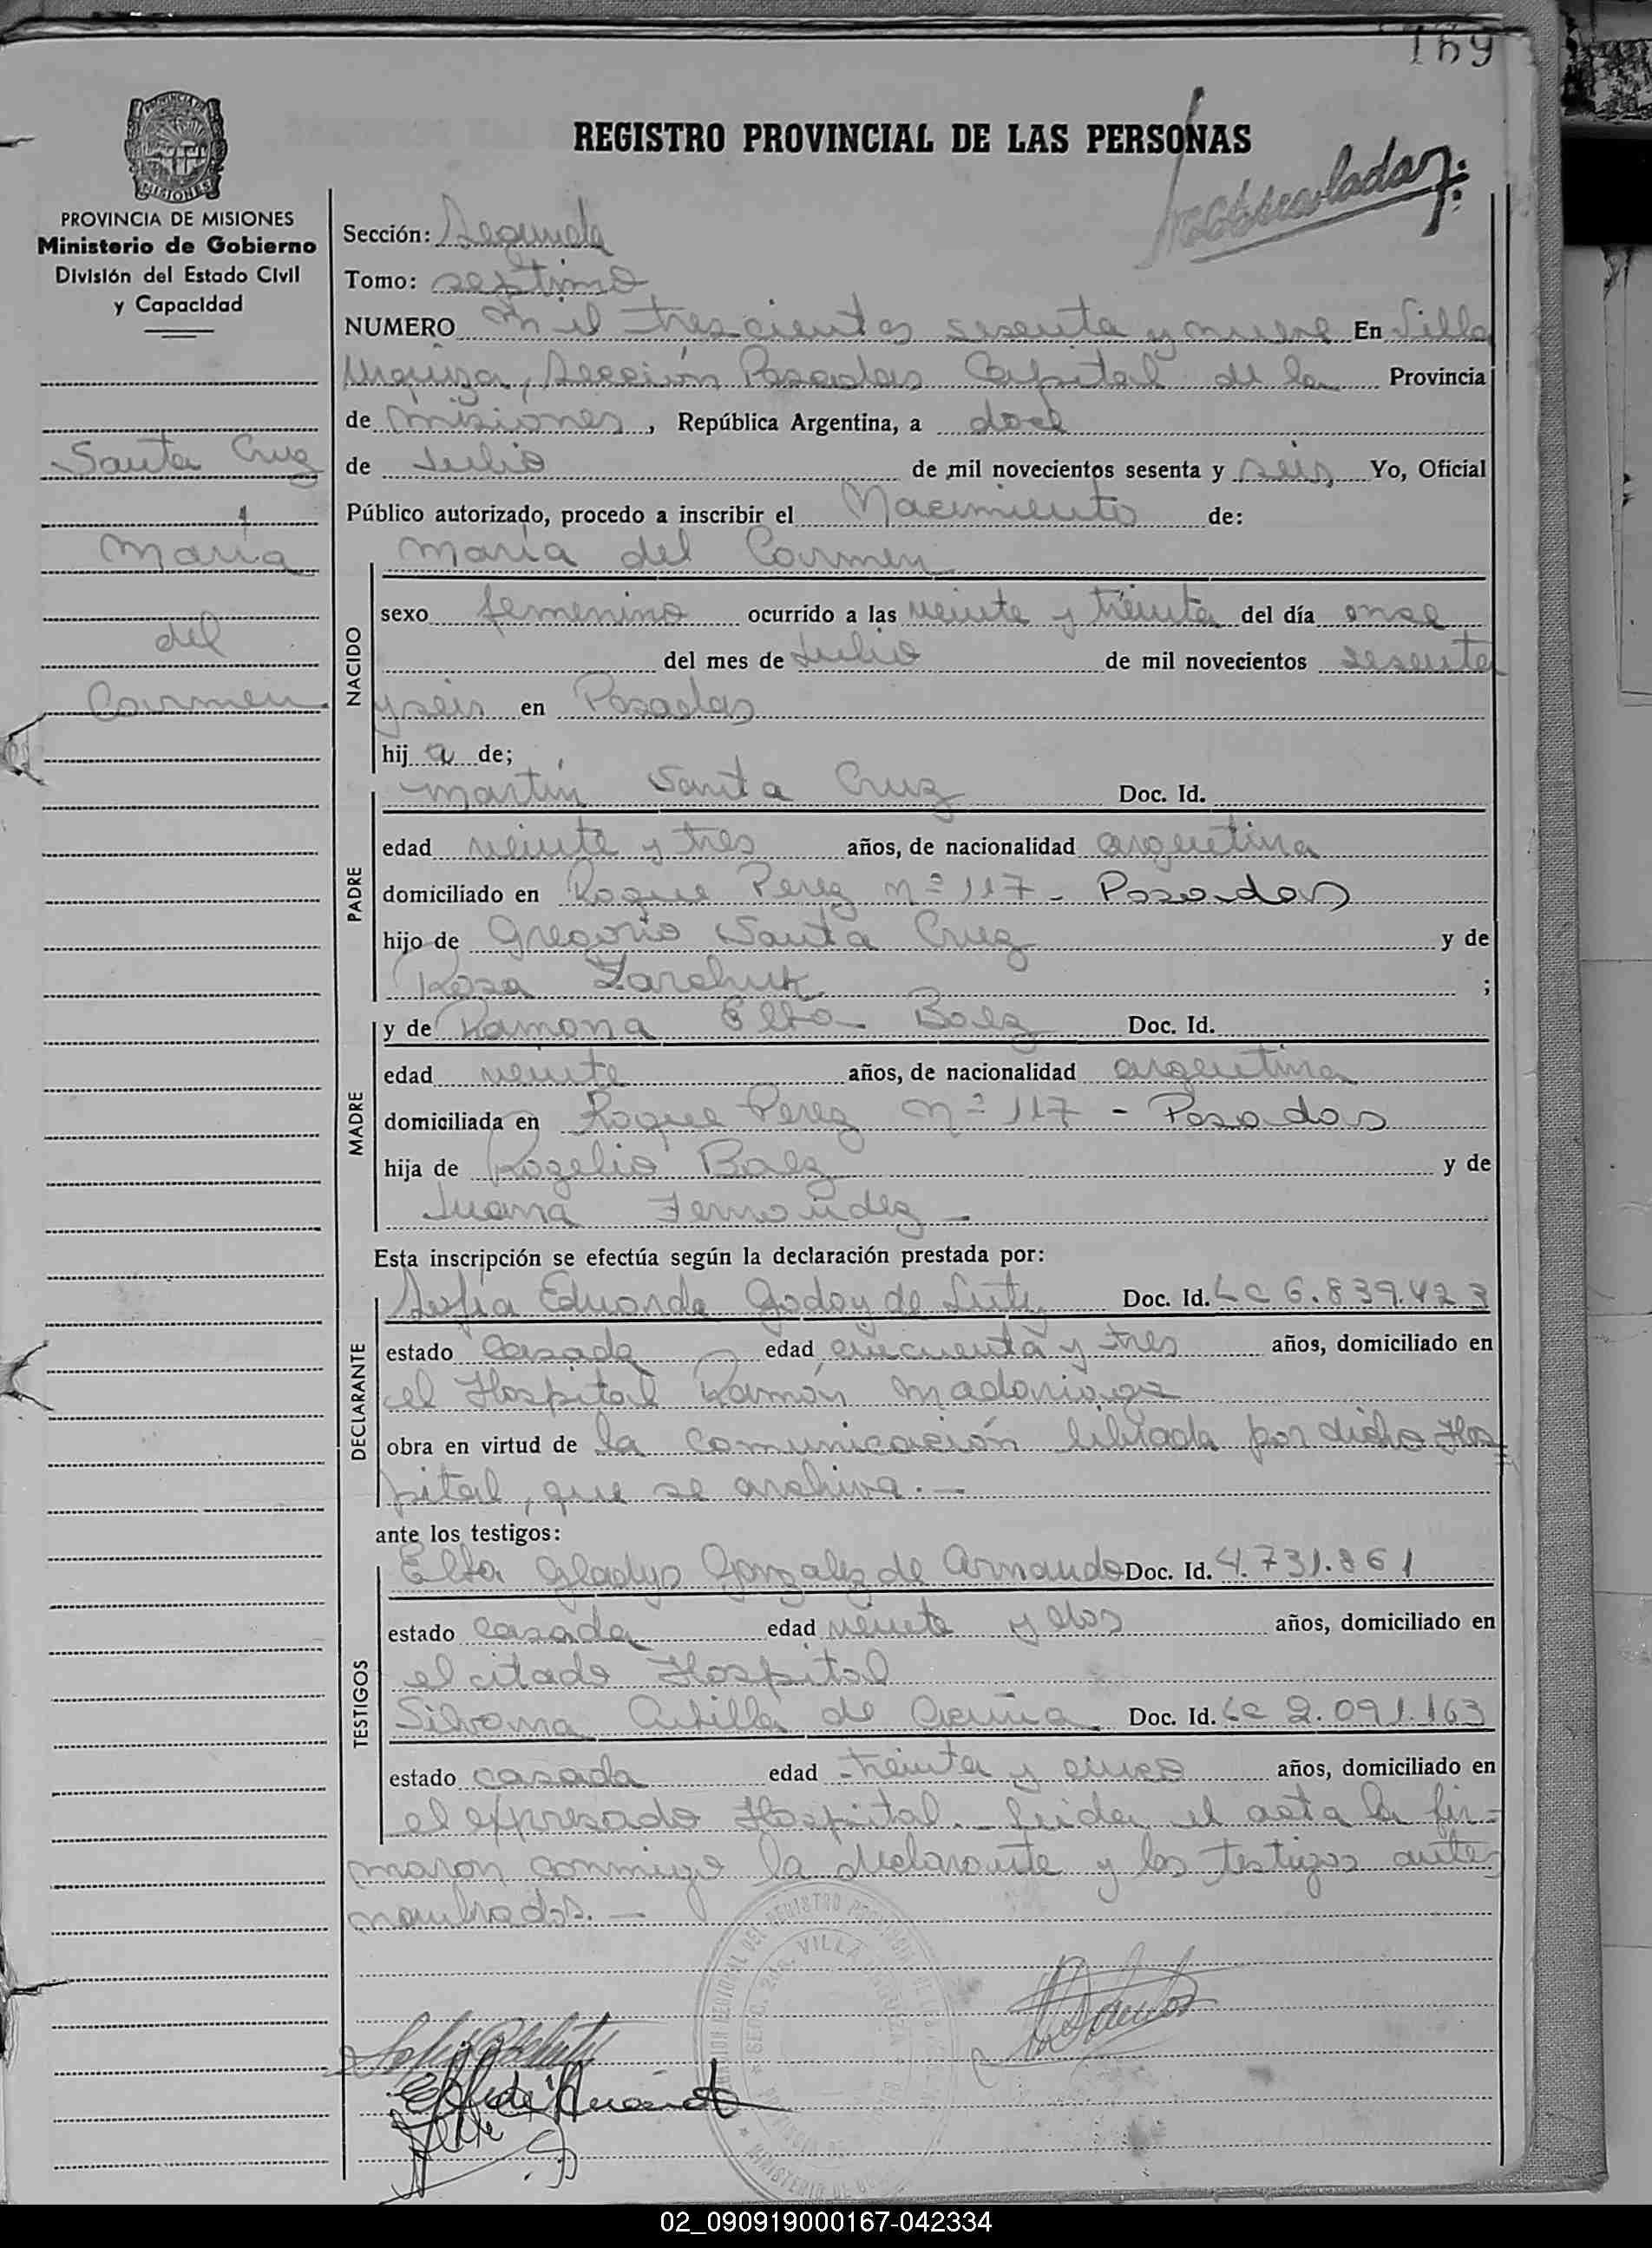 169
REGISTRO PROVINCIAL DE LAS PERSONAS
MISIONES
PROVINCIA DE MISIONES
Ministerio de Gobierno
División del Estado Civil
y Capacidad
Santa Cruz
María
del
Carmen
Sección: Segunda
Tomo: septimo
NUMERO Mil trescientos sesenta y nueve En Villa
Urquiza, Sección Posadas Capital de la Provincia
de Misiones, República Argentina, a doce
de Julio de mil novecientos sesenta y seis, Yo, Oficial
Público autorizado, procedo a inscribir el Nacimiento de:
María del Carmen
NACIDO
sexo femenino ocurrido a las veinte y treinta del día once
del mes de Julio de mil novecientos sesenta
y seis en Posadas
hij a de;
PADRE
Martín Santa Cruz Doc. Id.
edad veinte y tres años, de nacionalidad argentina
domiciliado en Roque Perez nº 117 - Posadas
hijo de Gregorio Santa Cruz y de
Rosa Zarchuk ;
MADRE
y de Ramona Elba Baez Doc. Id.
edad veinte años, de nacionalidad argentina
domiciliada en Roque Perez nº 117 - Posadas
hija de Rogelio Baez y de
Juana Fernández -
Esta inscripción se efectúa según la declaración prestada por:
DECLARANTE
Sofia Eduarda Godoy de Doc. Id. LC 6.839.423
estado casada edad cincuenta y tres años, domiciliado en
el Hospital Ramón Madariaga
obra en virtud de la comunicación librada por dicho Hos
pital, que se archiva. -
ante los testigos:
TESTIGOS
Elba Gladys Gonzalez de Armando Doc. Id. 4.731.861
estado casada edad veinte y dos años, domiciliado en
el citado Hospital
Silvana de Acuña Doc. Id. LC 2.091.163
estado casada edad treinta y cinco años, domiciliado en
el expresado Hospital. - Leida el acta la fir-
maron conmigo la declarante y los testigos ante
nombrados. -
VILLA URQUIZA
02_090919000167-042334